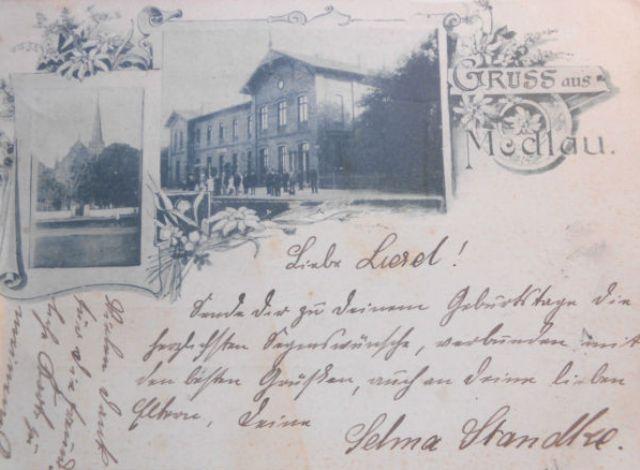 GRUSS aus
Modlau.
Liebe Liesel!
Sende dir zu deinem Geburtstage die
herzlichsten Segenswünsche, verbunden mit
den besten Grüßen, auch an deine lieben
Eltern, Deine
Selma Standke.
Vielen Dank